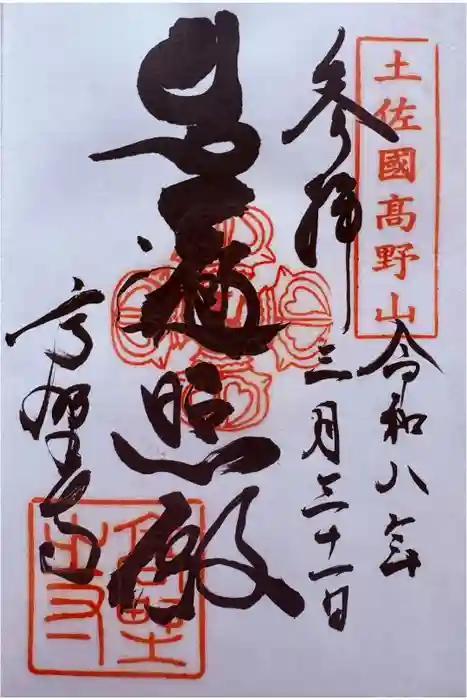 土佐國髙野山
令和八年
参拝
三月三十一日
遍照殿
高野寺